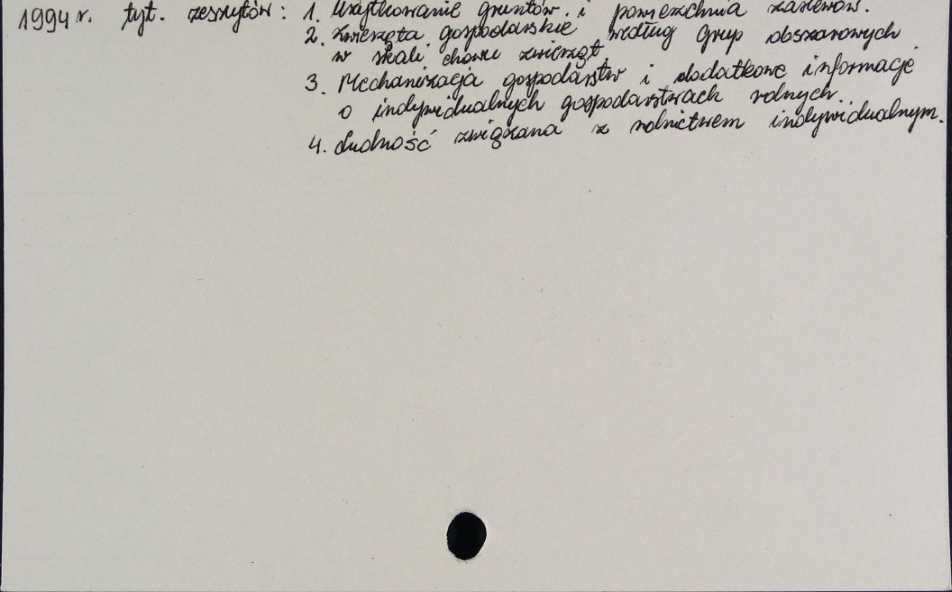 1994 r. tyt. zeszytów: 1. Użytkowanie gruntów i powierzchnia zasiewów.
2. Zwierzęta gospodarskie według grup obszarowych
w skali chowu zwierząt
3. Mechanizacja gospodarstw i dodatkowe informacje
o indywidualnych gospodarstwach rolnych.
4. Ludność związana z rolnictwem indywidualnym.